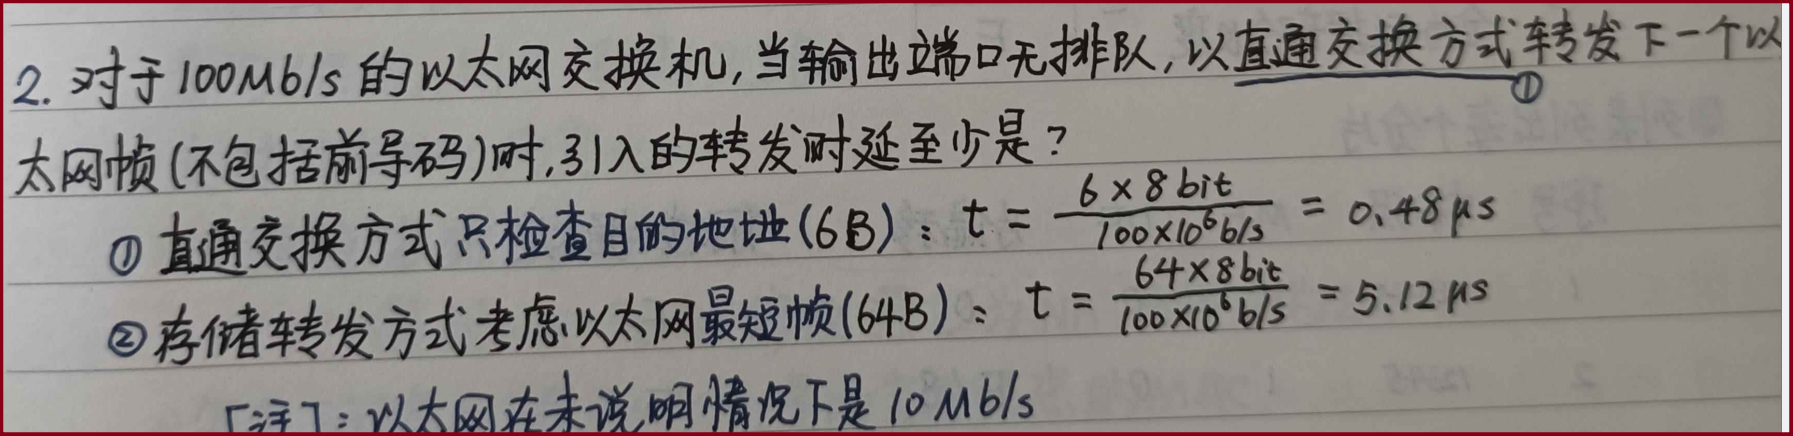 2. 对于100Mb/s的以太网交换机,当输出端口无排队,以直通交换方式转发下一个以
①
太网帧(不包括前导码)时,引入的转发时延至少是?
①直通交换方式只检查目的地址(6B): t = 6×8bit / 100×10⁶b/s = 0.48μs
②存储转发方式考虑以太网最短帧(64B): t = 64×8bit / 100×10⁶b/s = 5.12μs
[注]:以太网在未说明情况下是10Mb/s